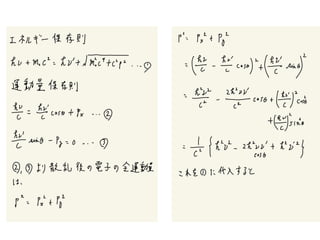 エネルギー保存則
hν + m₀c² = hν' + √(m₀²c⁴ + c²p²) … ①
運動量保存則
hν/c = hν'/c cosθ + Pₓ … ②
hν'/c sinθ − P_y = 0 … ③
②,③より散乱後の電子の全運動量
は、
p² = Pₓ² + P_y²
p² = Pₓ² + P_y²
= (hν/c − hν'/c cosθ)² + (hν'/c sinθ)²
= h²ν²/c² − 2h²νν'/c² cosθ + (hν'/c)² cos²θ
+ (hν'/c)² sin²θ
= 1/c² { h²ν² − 2h²νν' cosθ + h²ν'² }
これを①に代入すると